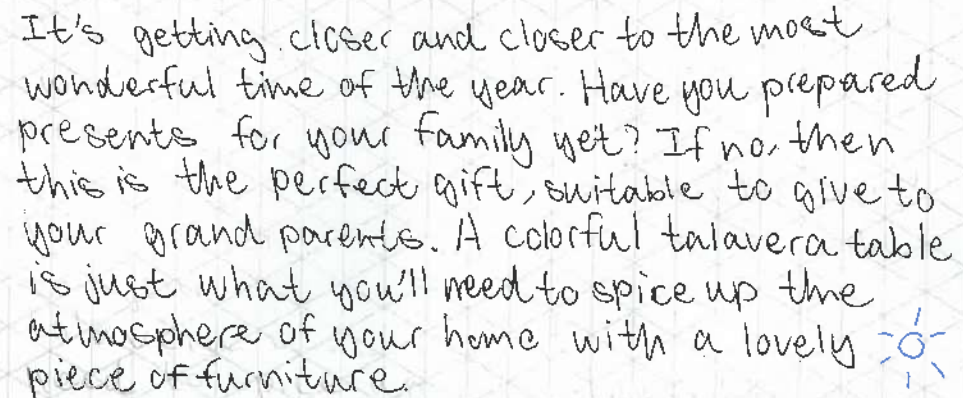 It's getting closer and closer to the most
wonderful time of the year. Have you prepared
presents for your family yet? If no, then
this is the perfect gift, suitable to give to
your grand parents. A colorful talavera table
is just what you'll need to spice up the
atmosphere of your home with a lovely
piece of furniture.